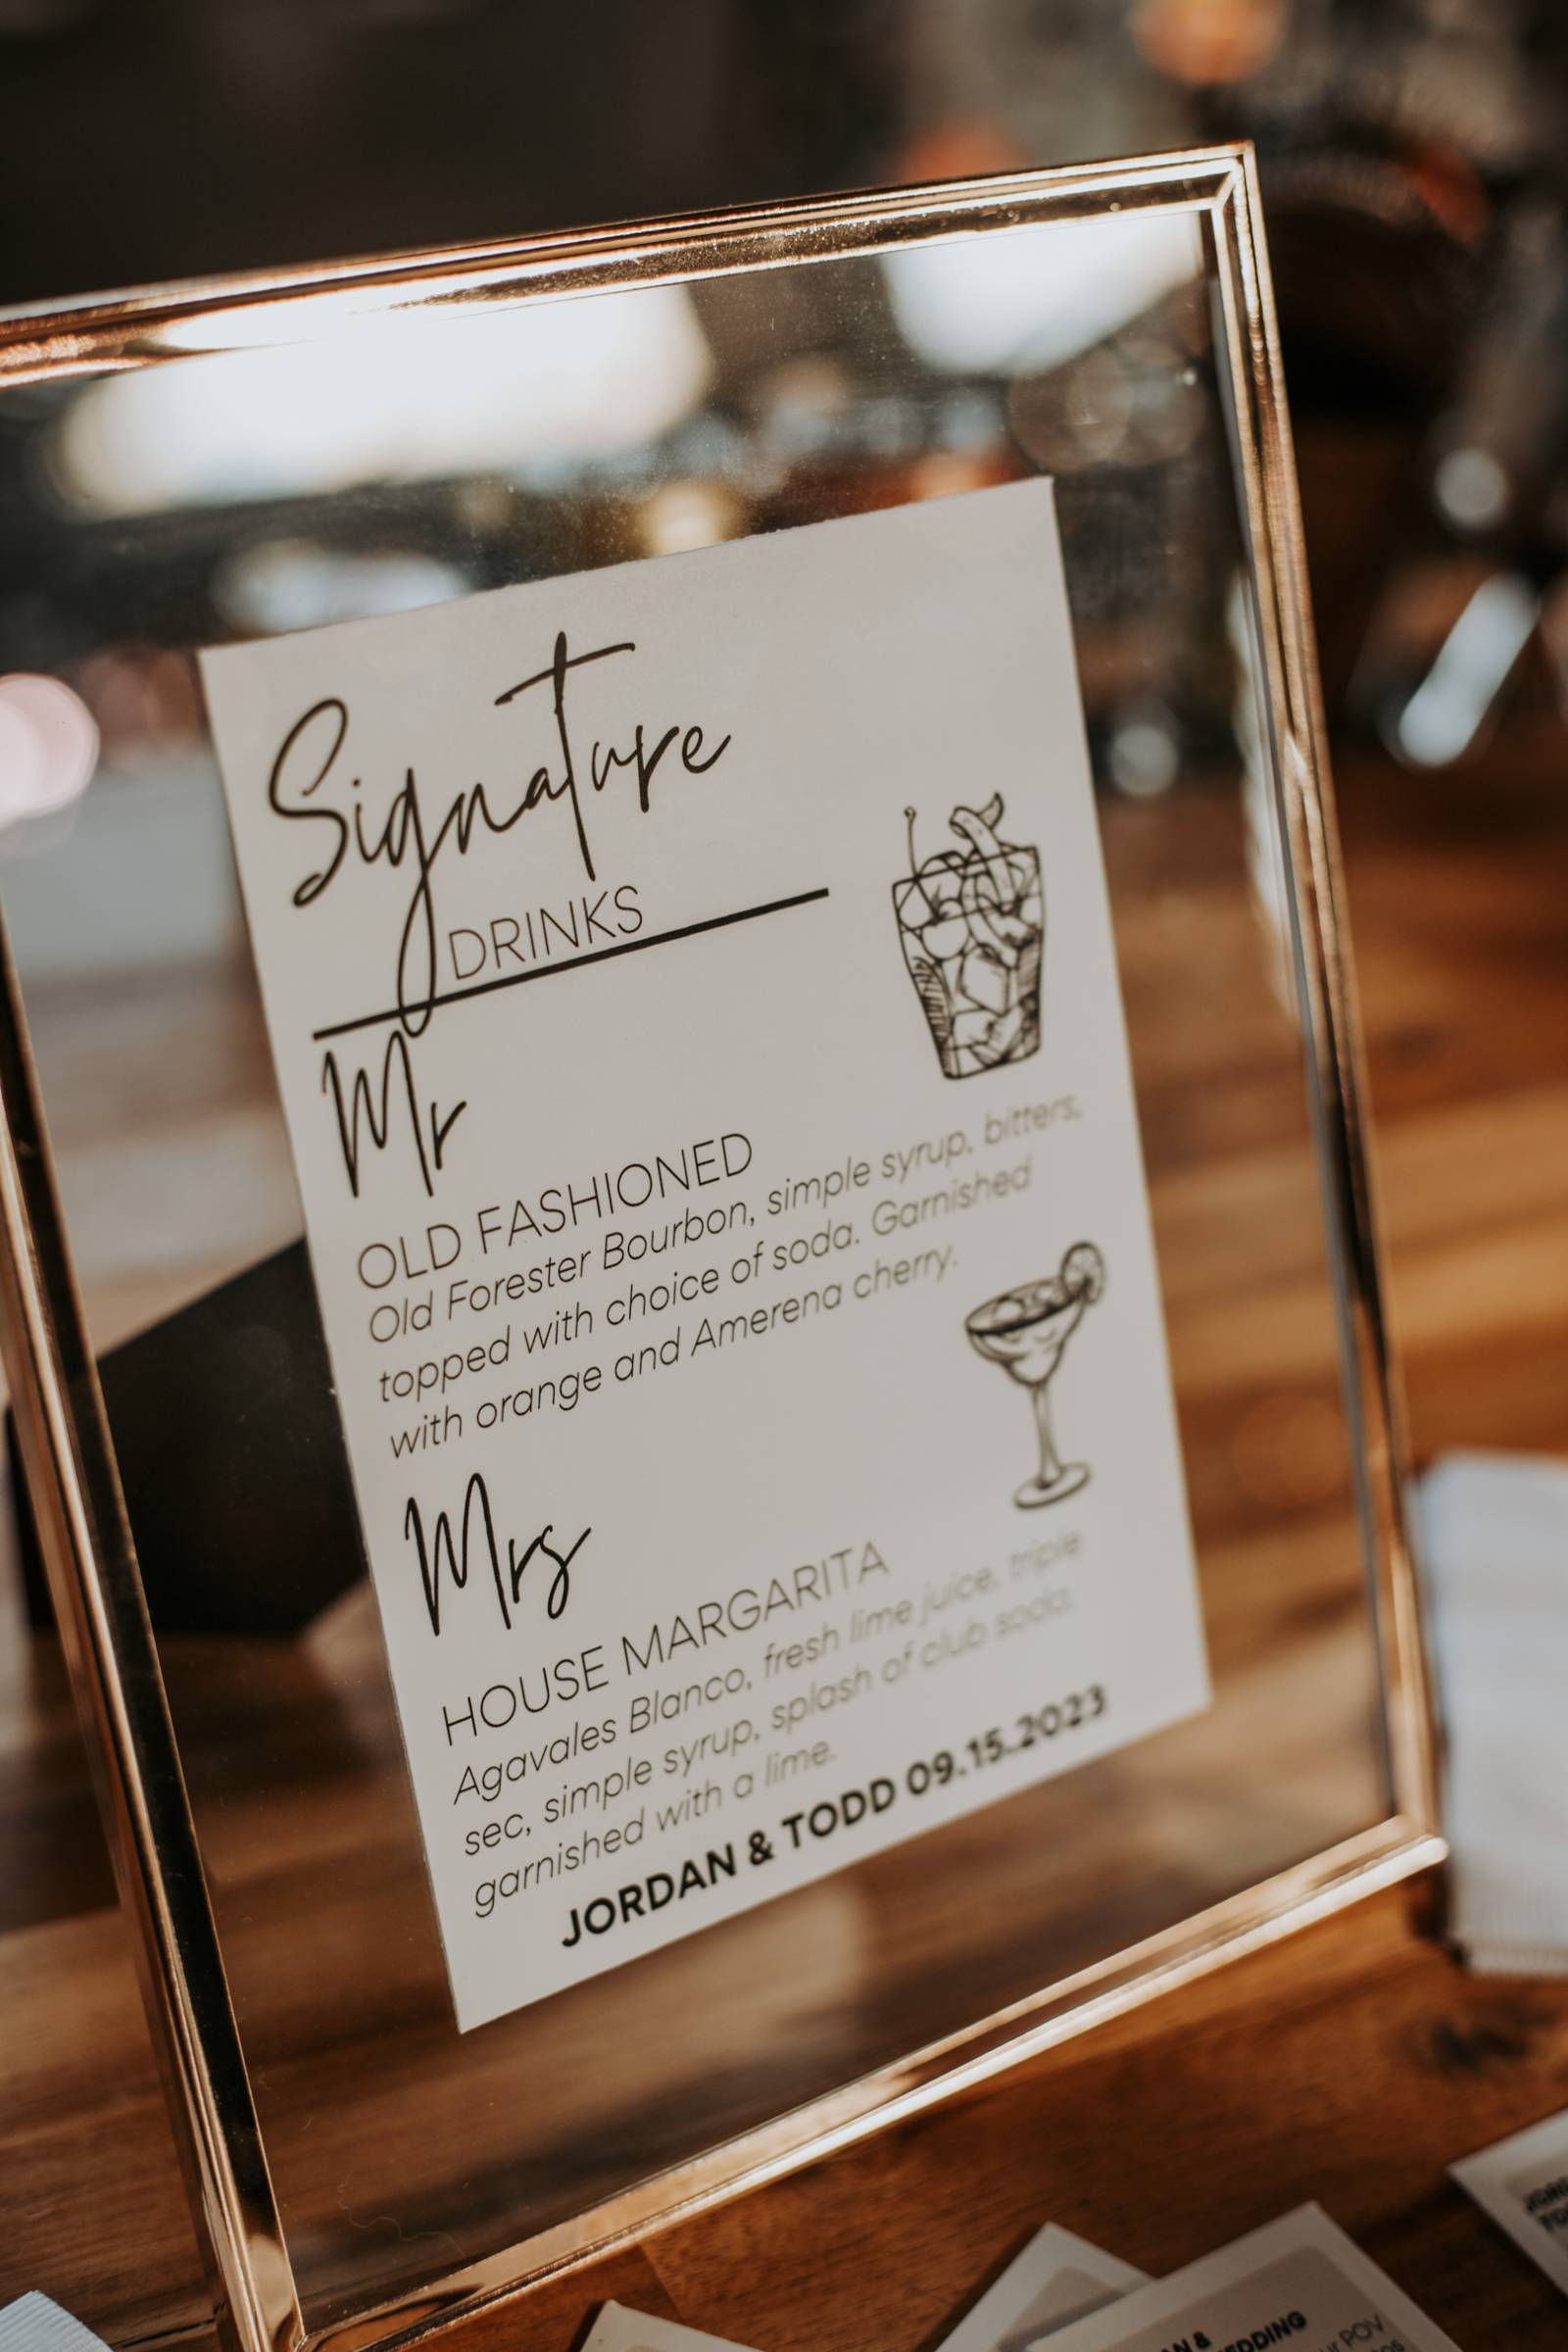 Signature
DRINKS
Mr
OLD FASHIONED
Old Forester Bourbon, simple syrup, bitters,
topped with choice of soda. Garnished
with orange and Amerena cherry.
Mrs
HOUSE MARGARITA
Agavales Blanco, fresh lime juice, triple
sec, simple syrup, splash of club soda,
garnished with a lime.
JORDAN & TODD 09.15.2023